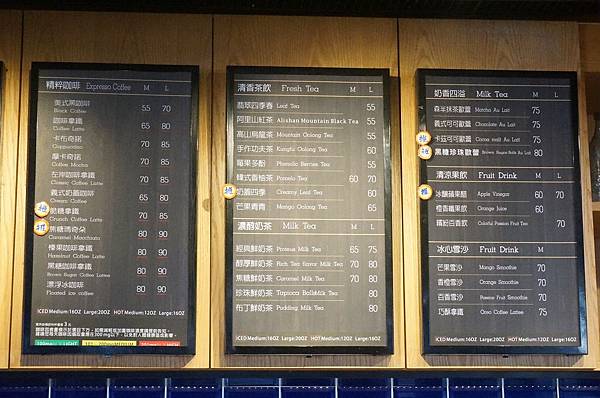 精粹咖啡 Expresso Coffee M L
美式黑咖啡 Black Coffee 55 70
咖啡拿鐵 Coffee Latte 65 80
卡布奇諾 Cappuccino 70 85
摩卡奇諾 Coffee Mocha 70 85
左岸咖啡拿鐵 Classic Coffee Latte 70 85
義式奶蓋咖啡 Cream Coffee 65 80
脆糖拿鐵 Crunch Coffee Latte 70 85
焦糖瑪奇朵 Caramel Macchiato 80 90
榛果咖啡拿鐵 Hazelnut Coffee Latte 80 90
黑糖咖啡拿鐵 Brown Sugar Coffee Latte 80 90
漂浮冰咖啡 Floated ice coffee 80
ICED Medium:16OZ Large:20OZ HOT Medium:12OZ Large:16OZ
清香茶飲 Fresh Tea M L
翡翠四季春 Leaf Tea 55
阿里山紅茶 Alishan Mountain Black Tea 55
高山烏龍茶 Mountain Oolong Tea 55
手作功夫茶 Kungfu Oolong Tea 60
莓果多酚 Phenolic Berries Tea 55
韓式香柚茶 Pomelo Tea 60 70
奶蓋四季 Creamy Leaf Tea 60
芒果青青 Mango Oolong Tea 65
濃醇奶茶 Milk Tea M L
經典鮮奶茶 Proteus Milk Tea 65 75
醇厚鮮奶茶 Rich Tea flavor Milk Tea 70 80
焦糖鮮奶茶 Caramel Milk Tea 70 80
珍珠鮮奶茶 Tapioca BallsMilk Tea 80
布丁鮮奶茶 Pudding Milk Tea 80
ICED Medium:16OZ Large:20OZ HOT Medium:12OZ Large:16OZ
奶香四溢 Milk Tea M L
森半抹茶歐蕾 Matcha Au Lait 75
義式可可歐蕾 Chocolate Au Lait 75
卡茲可可歐蕾 Cocoa malt Au Lait 75
黑糖珍珠歐蕾 80
清涼果飲 Fruit Drink M L
冰釀蘋果醋 Apple Vinegar 60 70
橙香纖果飲 Orange Juice 60
繽紛百香飲 Colorful Passion Fruit Tea 70
冰心雪沙 Fruit Drink M
芒果雪沙 Mango Smoothie 70
香橙雪沙 Orange Smoothie 70
百香雪沙 Passion Fruit Smoothie 70
巧酥拿鐵 Oreo Coffee Lattee 75
ICED Medium:16OZ Large:20OZ HOT Medium:12OZ Large:16OZ